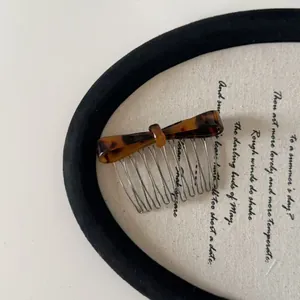 to a summer's day?
Thou art more lovely and more temperate:
Rough winds do shake
the darling buds of May,
And lease hath all too short a date.